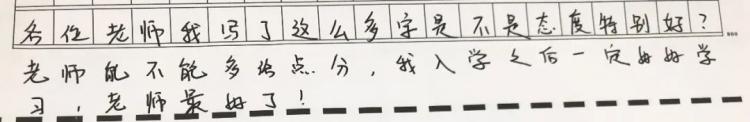 各位老师我写了这么多字是不是态度特别好?
老师能不能多给点分,我入学之后一定好好学
习,老师最好了!